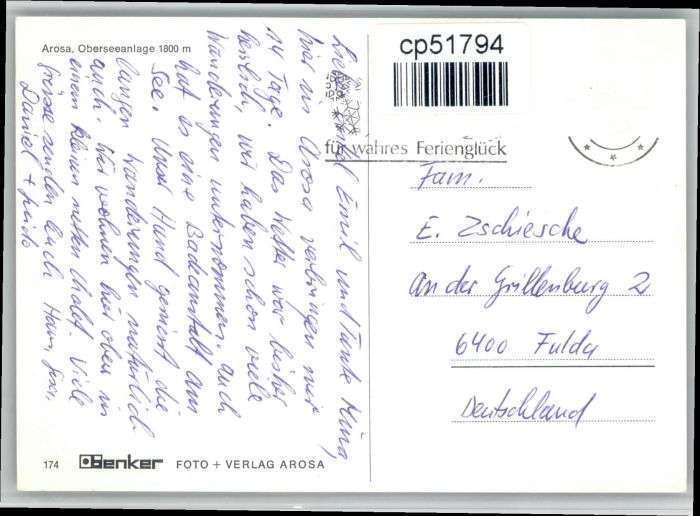 Arosa, Oberseeanlage 1800 m
Lieber Onkel Emil und Tante
Hier in Arosa verbringen wir
14 Tage. Das Wetter war bisher
herrlich, wir haben schon viele
Wanderungen unternommen. Auch
hat es eine Badeanstalt am
See. Unser Hund geniesst die
langen Wanderungen natürlich
auch. Wir wohnen hier oben in
einem kleinen netten Chalet. Viele
Grüsse senden Euch
Daniel +
cp51794
für wahres Ferienglück
Fam.
E. Zschiesche
An der Grillenburg 2
6400 Fulda
Deutschland
174 Benker FOTO + VERLAG AROSA